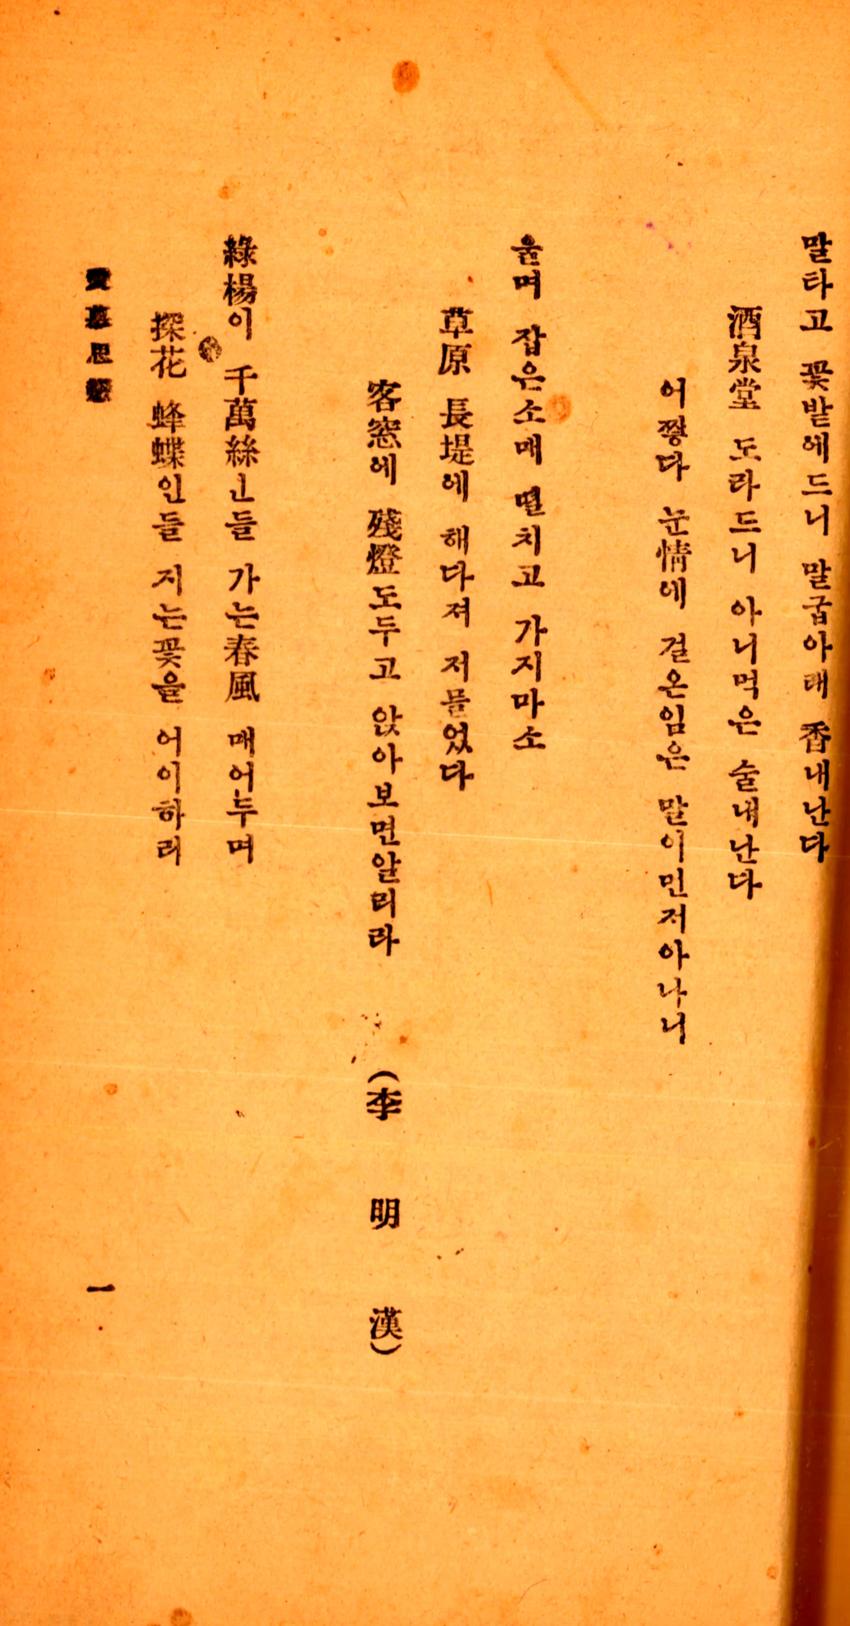 말타고 꽃밭에드니 말굽아래 香내난다
酒泉堂 도라드니 아니먹은 술내난다
어쩧다 눈情에 걸온임은 말이먼저아나니
울며 잡은소매 떨치고 가지마소
草原 長堤에 해다져 저믈었다
客窓에 殘燈도두고 앉아보면알리라 (李 明 漢)
綠楊이 千萬絲ㄴ들 가는春風 매어두며
探花 蜂蝶인들 지는꽃을 어이하리
愛慕思戀
一